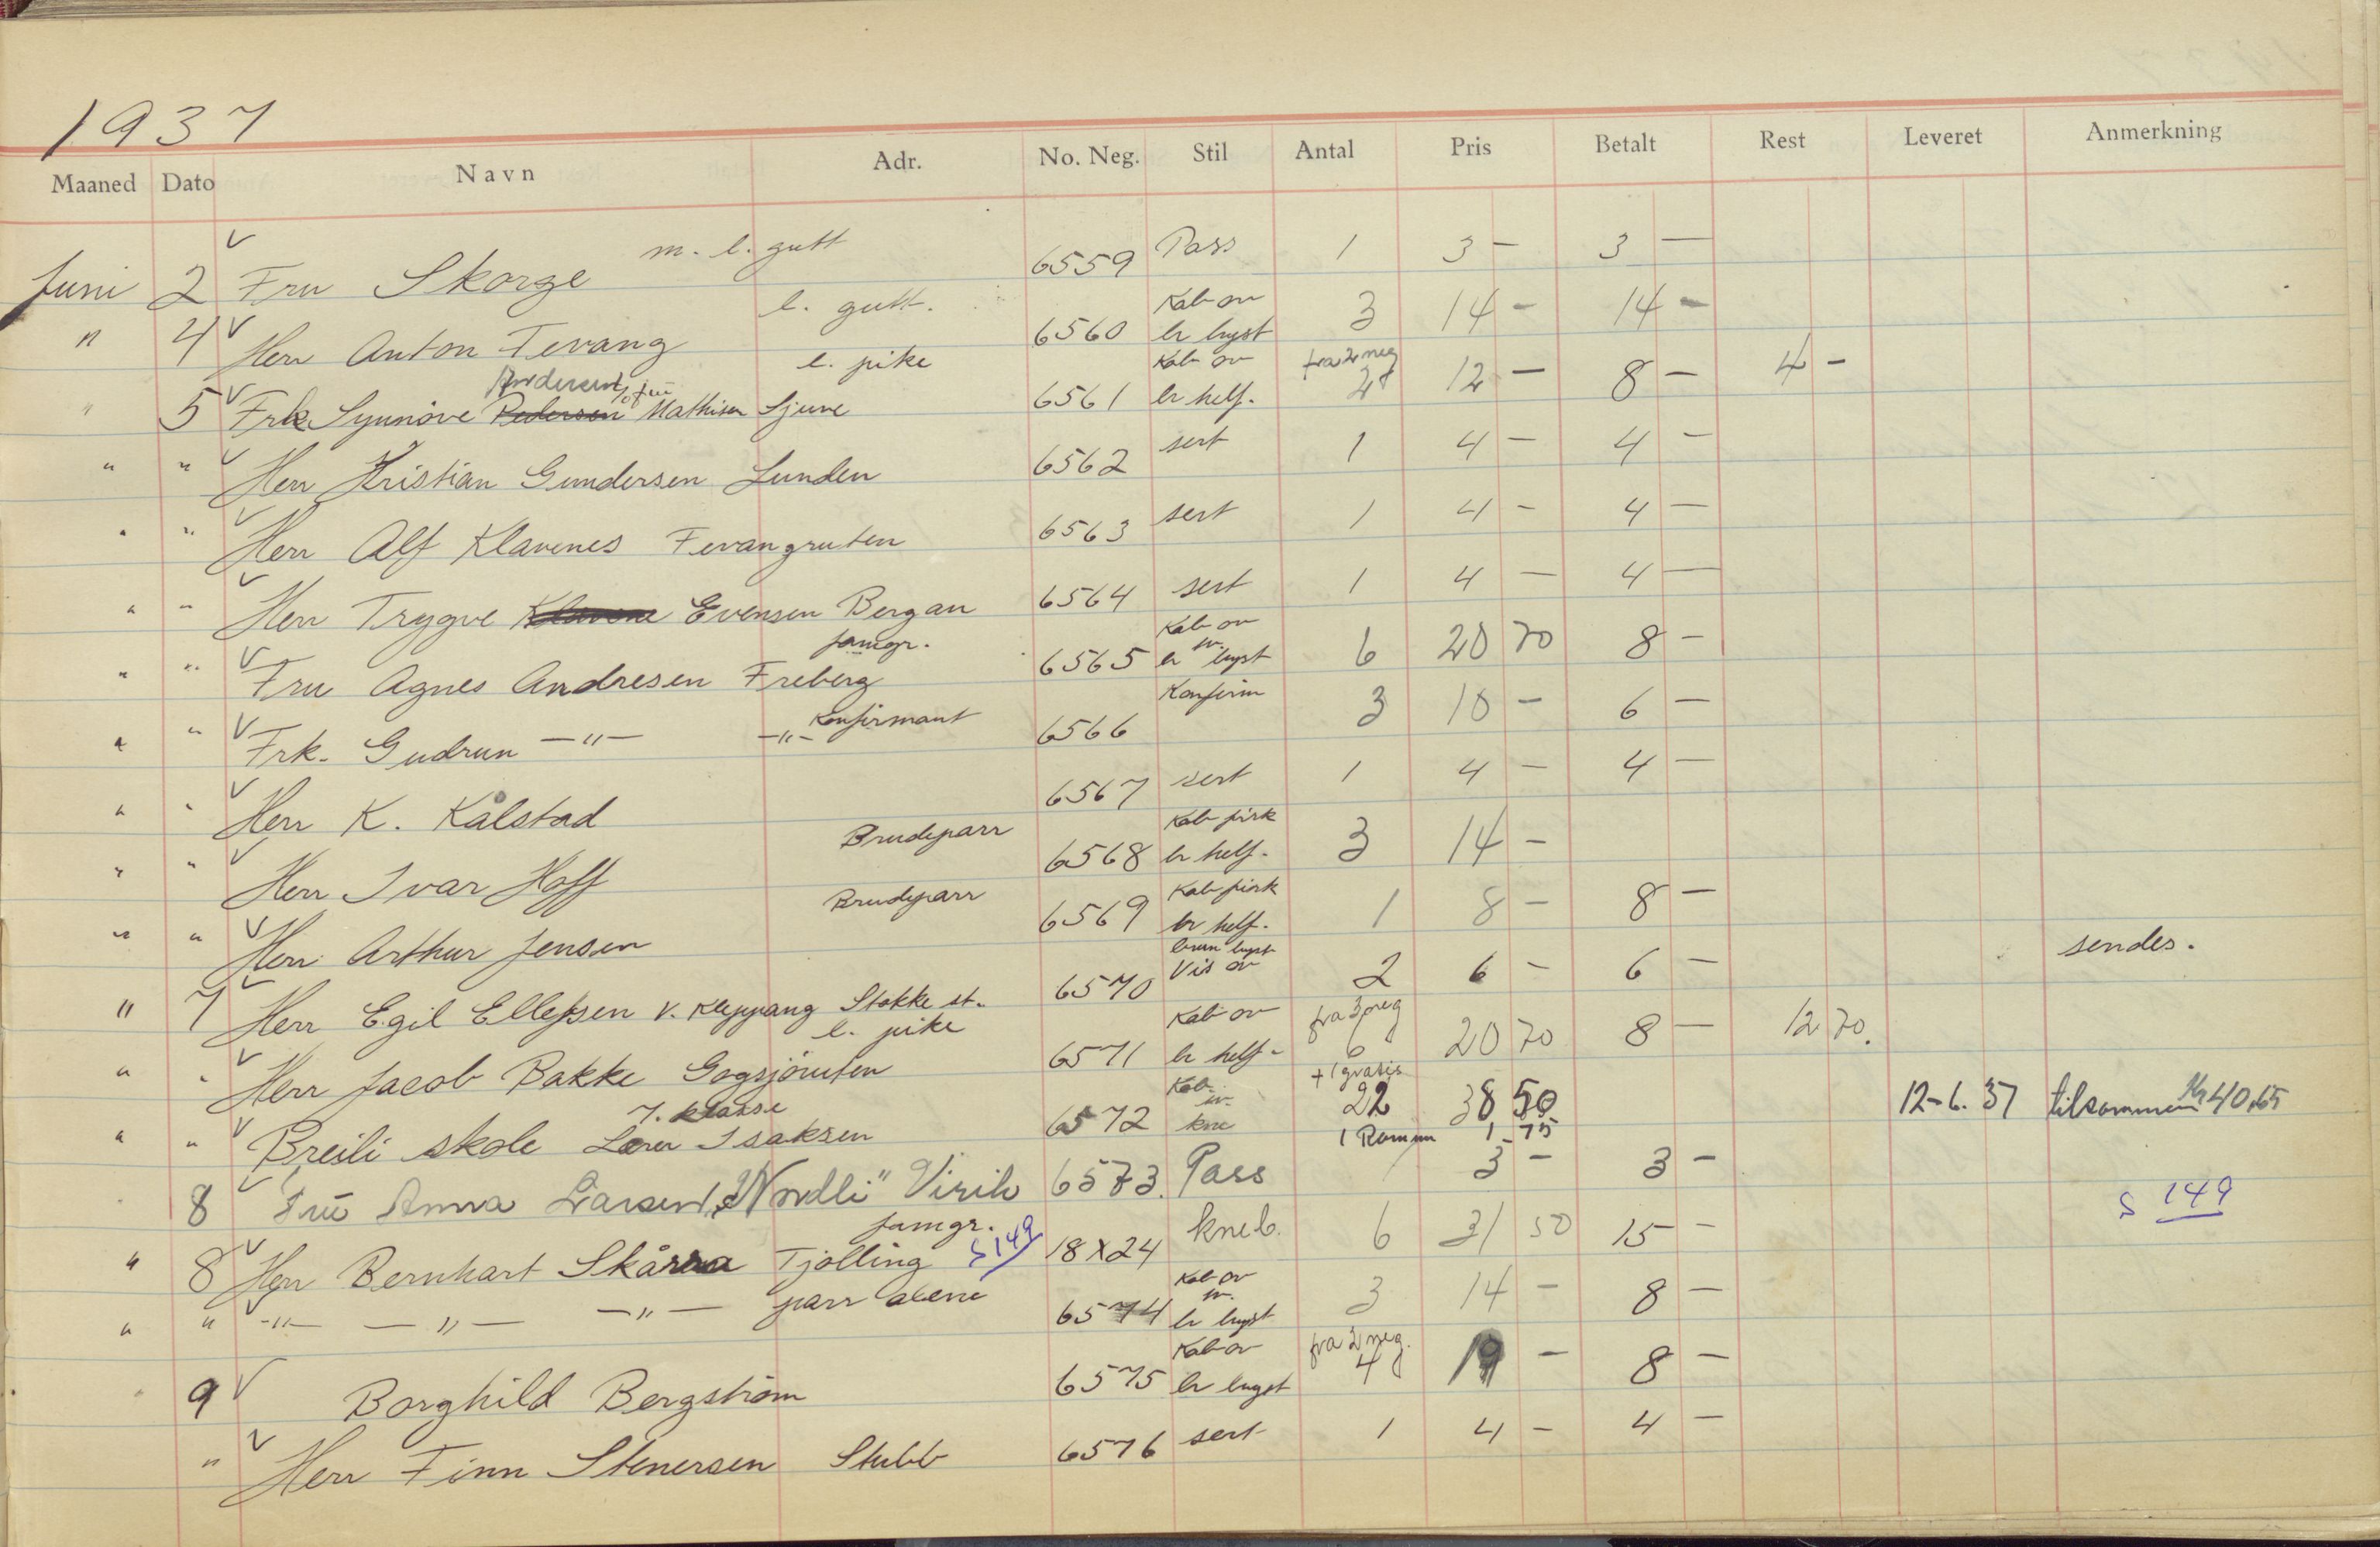 1937
Maaned Dato Navn Adr. No. Neg. Stil Antal Pris Betalt Rest Leveret Anmerkning
Juni 2 V Fru Skorge m. l. gutt 6559 Pass 1 3 — 3 —
" 4 V Herr Anton Tevang l. gutt. 6560 Kab ov br byst 3 14 — 14 —
" 5 V Frk Synnöve Pedersen Andersen Mathisen Sjuve l. pike 6561 Kab ov br helf. fra 2 neg 2 12 — 8 — 4 —
" " V Herr Kristian Gundersen Lunden 6562 sert 1 4 — 4 —
" " V Herr Alf Klavenes Fevangruten 6563 sert 1 4 — 4 —
" " V Herr Trygve Klavene Evensen Bergan 6564 sert 1 4 — 4 —
" " V Fru Agnes Andresen Freberg famgr. 6565 Kab ov br byst 6 20 70 8 —
" " V Frk. Gudrun —"— —"— Konfirmant 6566 Konfirm 3 10 — 6 —
" " V Herr K. Kålstad 6567 sert 1 4 — 4 —
" " V Herr Ivar Hoff Brudeparr 6568 Kab firk br helf. 3 14 —
" " V Herr Arthur Jensen Brudeparr 6569 Kab firk br helf. 1 8 — 8 —
" 7 V Herr Egil Ellefsen v. Kleppang Stokke st. 6570 brun byst Vis ov 2 6 — 6 — sendes.
" " V Herr Jacob Bakke Gogsjöruten l. pike 6571 Kab ov br helf. fra 3 neg 6 + 1 gratis 20 70 8 — 12 70.
" " V Breili skole Lærer Isaksen 7. klasse 6572 Kab kne 22 38 50 12-6. 37 tilsammen Kr 40.65
1 Ramme 1.75
8 V Frü Anna Larsen, "Nordli" Virik 6573. Pass 3 — 3 —
" 8 V Herr Bernhart Skårra Tjölling famgr. S 149 18 X 24 kneb. 6 31 50 15 — S 149
" " V —"— —"— —"— parr alene 6574 Kab ov br byst 3 14 — 8 —
" 9 V Borghild Bergström 6575 Kab ov br byst fra 2 neg. 4 19 — 8 —
" V Herr Finn Stenersen Stubb 6576 sert 1 4 — 4 —